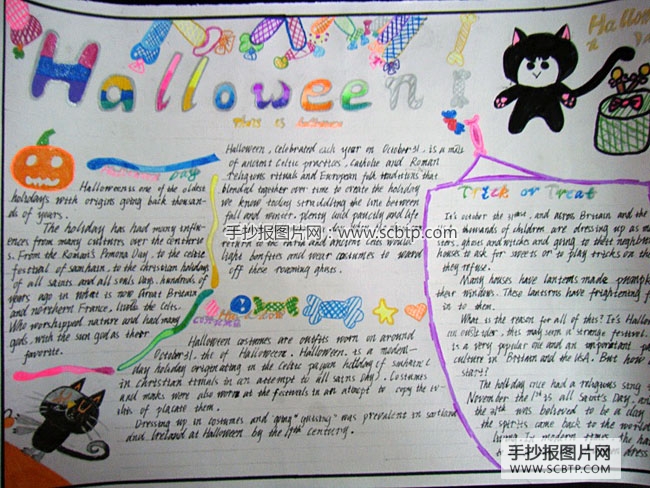 Halloween!
This is halloween
Hallow
Day
Halloween is one of the oldest
holidays with origins going back thousan-
ds of years.
The holiday has had many influ-
ences from many cultures over the centurie-
s. From the Roman's Pomona Day, to the celtic
festival of samhain, to the christian holidays
of all saints and all souls days. hundreds of
years ago in what is now Great Britain
and northern France, lived the Celts.
Who worshipped nature and had many
gods, with the sun god as their
favorite.
Halloween, celebrated each year on October 31. is a mix
of ancient Celtic practices, Catholic and Roman
religious rituals and European folk traditions that
blended together over time to create the holiday
we know today. straddling the line between
fall and winter. plenty and paucity and life
手抄报图片网：www.scbtp.com
return to the earth and ancient Celts would
light bonfires and wear costumes to ward
off these roaming ghosts.
costume
Halloween costumes are outfits worn on around
October 31. the of Halloween. Halloween is a modern-
day holiday originating in the Celtic pagan holiday of
in Christian times in an attempt to all saints Day). Costumes
and masks were also worn at the festivals in an attempt to copy the
of placate them.
Dressing up in costumes and going "guising" was prevalent in scotland
and Ireland at Halloween by the 19th century.
Trick or Treat
It's october the 31st, and across Britain and the
thousands of children are dressing up as
ghosts and witches and going to their neighbour
houses to ask for sweets or to play tricks on the
they refuse.
Many houses have lanterns made
their windows. These lanterns have frightening
in to them.
What is the reason for all of this? It's Hallow
an outsider, this may seem a strange festival.
is a very popular one and an important
culture in Britain and the USA. But how
start?
The holiday once had a religious
November the 1st is all Saint's Day, and
the 31st was believed to be a day
the spirits came back to the world
living. In modern times the
dress
手抄报图片网
WWW.SCBTP.COM